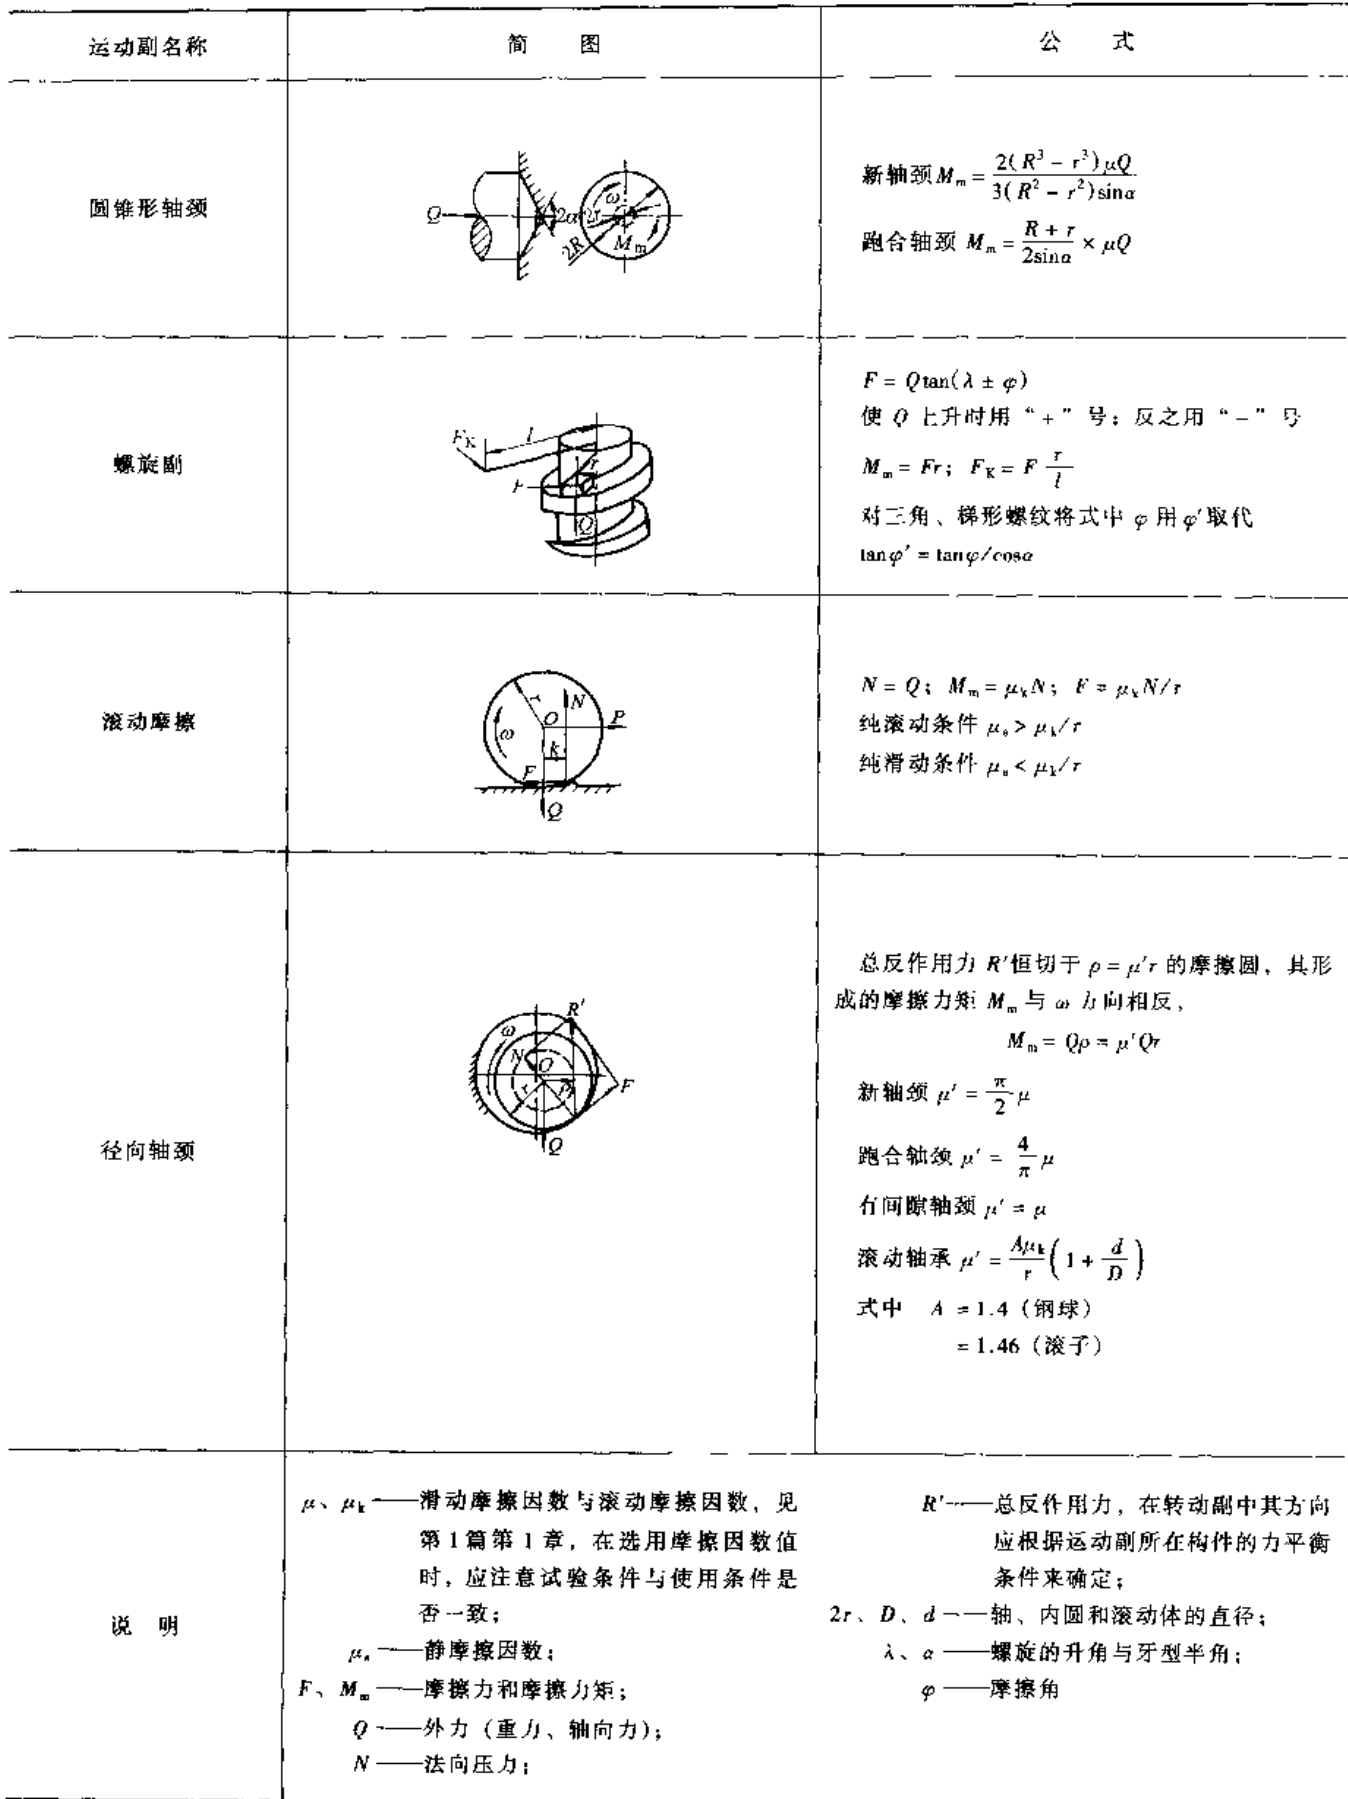 运动副名称 简 图 公 式
圆锥形轴颈
Q 2α 2r ω 2R M_m
新轴颈 M_m = 2(R³ - r³)μQ / 3(R² - r²)sinα
跑合轴颈 M_m = (R + r)/(2sinα) × μQ
螺旋副
F_K l r F Q
F = Qtan(λ ± φ)
使 Q 上升时用“+”号；反之用“-”号
M_m = Fr； F_K = F r/l
对三角、梯形螺纹将式中 φ 用 φ′取代
tanφ′ = tanφ/cosα
滚动摩擦
r N O P ω k F Q
N = Q； M_m = μ_k N； F = μ_k N/r
纯滚动条件 μ_s > μ_k/r
纯滑动条件 μ_s < μ_k/r
径向轴颈
R′ ω N O r ρ F Q
总反作用力 R′恒切于 ρ = μ′r 的摩擦圆，其形
成的摩擦力矩 M_m 与 ω 方向相反，
M_m = Qρ = μ′Qr
新轴颈 μ′ = π/2 μ
跑合轴颈 μ′ = 4/π μ
有间隙轴颈 μ′ = μ
滚动轴承 μ′ = Aμ_k/r (1 + d/D)
式中 A = 1.4（钢球）
= 1.46（滚子）
说 明
μ、μ_k——滑动摩擦因数与滚动摩擦因数，见
第1篇第1章，在选用摩擦因数值
时，应注意试验条件与使用条件是
否一致；
μ_s——静摩擦因数；
F、M_m——摩擦力和摩擦力矩；
Q——外力（重力、轴向力）；
N——法向压力；
R′——总反作用力，在转动副中其方向
应根据运动副所在构件的力平衡
条件来确定；
2r、D、d——轴、内圆和滚动体的直径；
λ、α——螺旋的升角与牙型半角；
φ——摩擦角